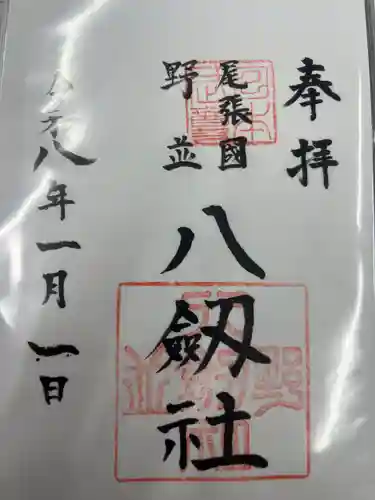 奉拝
尾張國
野並
八劔社
令和八年一月一日